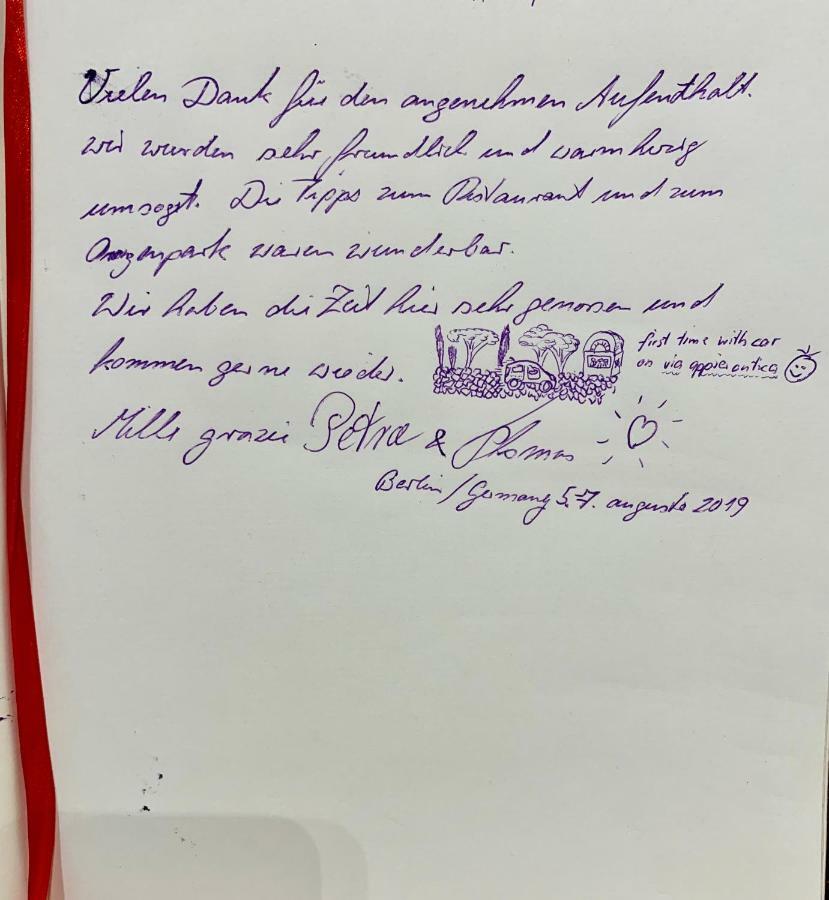 Vielen Dank für den angenehmen Aufenthalt.
wir wurden sehr freundlich und warmherzig
umsorgt. Die Tipps zum Restaurant und zum
waren wunderbar.
Wir haben die Zeit hier sehr genossen und
kommen gerne wieder.
first time with car
on via appia antica
Mille grazie Petra & Thomas
Berlin/Germany 5.-7. augusto 2019